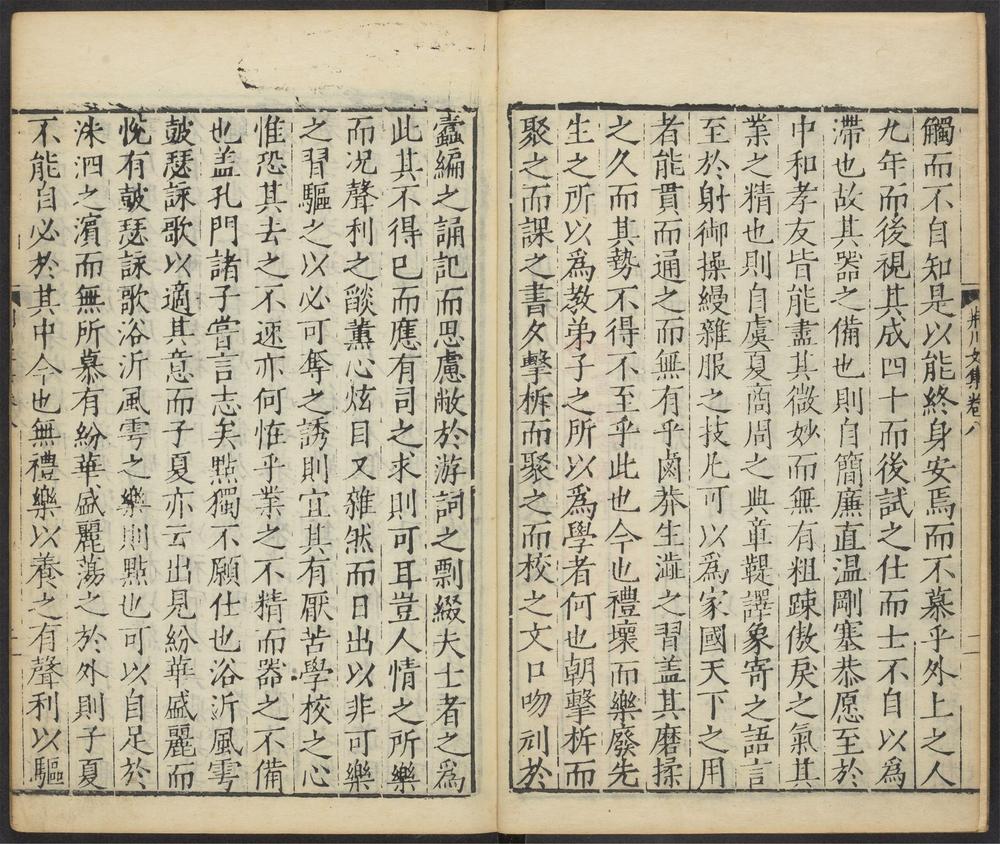 荊川文集卷八
觸而不自知是以能終身安焉而不慕乎外上之人
九年而後視其成四十而後試之仕而士不自以爲
滯也故其器之備也則自簡廉直温剛塞恭愿至於
中和孝友皆能盡其微妙而無有粗踈傲戾之氣其
業之精也則自虞夏商周之典章鞮譯象寄之語言
至於射御操縵雜服之技凡可以爲家國天下之用
者能貫而通之而無有乎鹵莽生澁之習盖其磨揉
之久而其勢不得不至乎此也今也禮壞而樂廢先
生之所以爲教弟子之所以爲學者何也朝擊柝而
聚之而課之書夕擊柝而聚之而校之文口吻刓於
蠹編之誦記而思慮敝於游詞之剽綴夫士者之爲
此其不得已而應有司之求則可耳豈人情之所樂
而况聲利之燄薰心炫目又雜然而日出以非可樂
之習驅之以必可奪之誘則宜其有厭苦學校之心
惟恐其去之不速亦何恠乎業之不精而器之不備
也盖孔門諸子嘗言志矣點獨不願仕也浴沂風雩
鼓瑟詠歌以適其意而子夏亦云出見紛華盛麗而
悅有鼓瑟詠歌浴沂風雩之樂則點也可以自足於
洙泗之濱而無所慕有紛華盛麗蕩之於外則子夏
不能自必於其中今也無禮樂以養之有聲利以驅